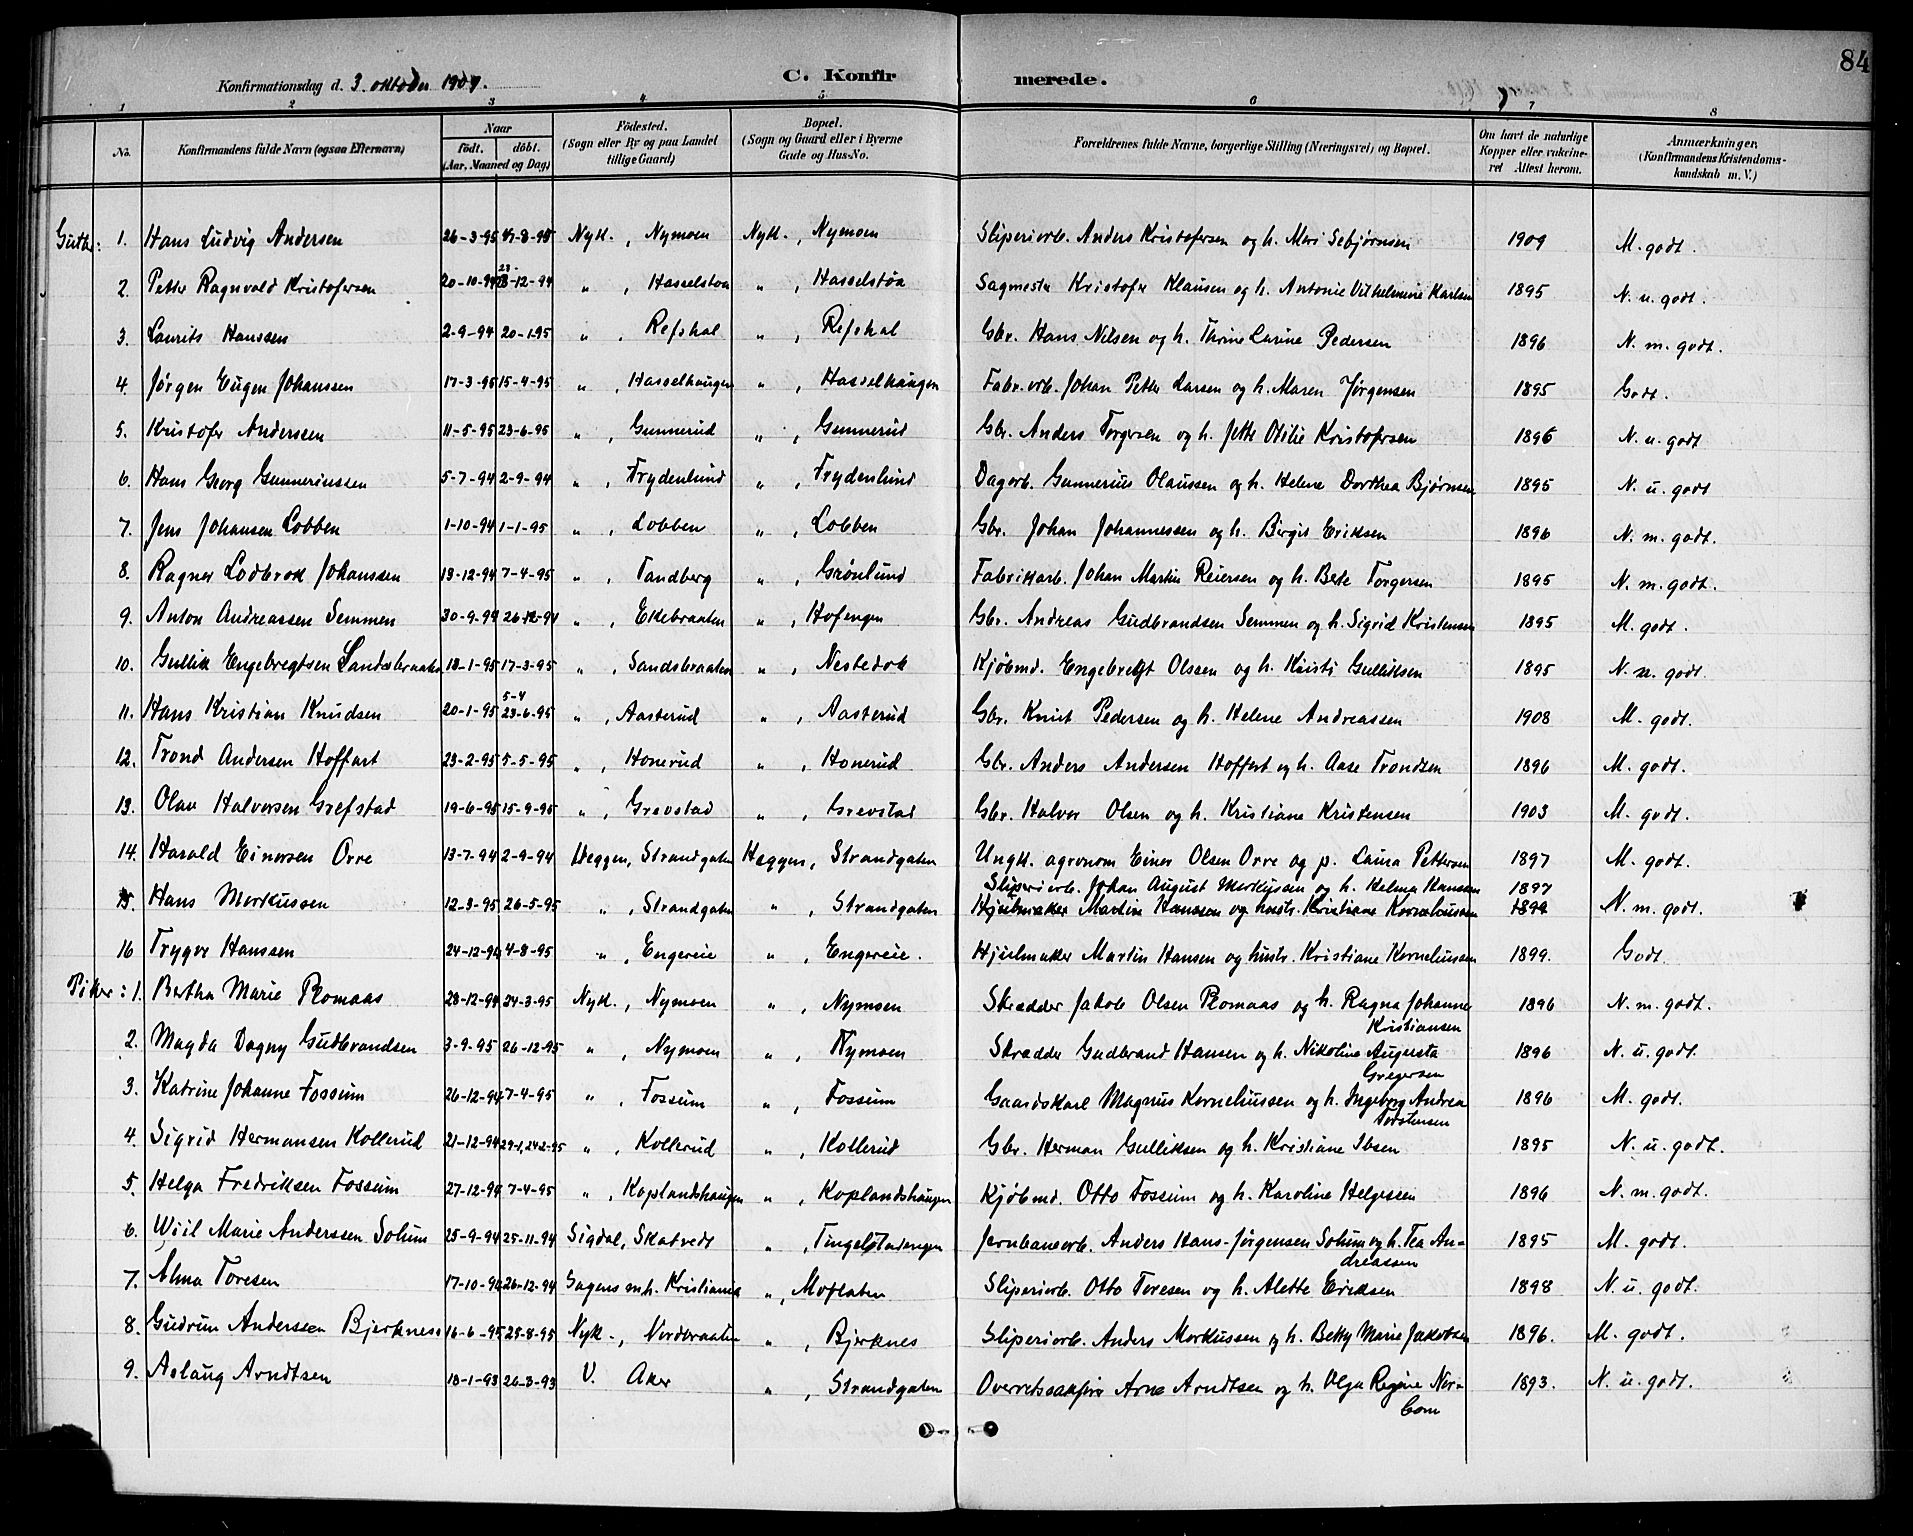 84
Konfirmationsdag d. 3. oktober 1909.
C. Konfirmerede.
1 2 3 4 5 6 7 8
No. Konfirmandens fulde Navn (ogsaa Efternavn) Naar født. døbt. (Aar, Maaned og Dag) Fødested. (Sogn eller By og paa Landet tillige Gaard) Bopæl. (Sogn og Gaard eller i Byerne Gade og Hus-No. Forældrenes fulde Navne, borgerlige Stilling (Næringsvei) og Bopæl. Om havt de naturlige Kopper eller vakcineret Attest herom. Anmærkninger. (Konfirmandens Kristendomskundskab m. V.)
Gutter: 1. Hans Ludvig Andersen 26-3-95 -8-95 Nyk., Nymoen Nyk., Nymoen Sliperiarb. Anders Kristofersen og h. Mari Sebjørnsen 1909 M. godt.
2. Petter Ragnvald Kristofersen 20-10-94 23-12-94 " , Hasselstøa " , Hasselstøa Sagmester Kristofer Klausen og h. Antonie Vilhelmine Karlsen 1895 N. u. godt.
3. Laurits Hanssen 2-9-94 20-1-95 " , Refskal " , Refskal Gbr. Hans Nilsen og h. Thrine Larine Pedersen 1896 N. m. godt.
4. Jørgen Eugen Johanssen 17-3-95 15-4-95 " , Hasselhaugen " , Hasselhaugen Fabr.arb. Johan Petter Larsen og h. Maren Jørgensen 1895 Godt.
5. Kristofer Anderssen 11-5-95 23-6-95 " , Gunnerud " , Gunnerud Gbr. Anders Torgersen og h. Jette Otilie Kristofersen 1896 N. u. godt
6. Hans Georg Gunneriussen 5-7-94 2-9-94 " , Frydenlund " , Frydenlund Dagarb. Gunnerius Olaussen og h. Helene Dorthea Bjørnsen 1895 N. u. godt
7. Jens Johansen Lobben 1-10-94 1-1-95 " , Lobben " , Lobben Gbr. Johan Johannessen og h. Birgit Eriksen 1896 N. m. godt.
8. Ragner Lodbrok Johanssen 13-12-94 7-4-95 " , Tandberg " , Grønlund Fabrikarb. Johan Martin Reiersen og h. Berte Torgersen 1895 N. m. godt.
9. Anton Andreassen Semmen 30-9-94 26-12-94 " , Ekebraaten " , Hofengen Gbr. Andreas Gudbrandsen Semmen og h. Sigrid Kristensen 1895 M. godt.
10. Gullik Engebregtsen Sandsbraaten 18-1-95 17-3-95 " , Sandsbraaten " , Nestedok Kjøbmd. Engebregt Olssen og h. Kristi Gulliksen 1895 N. m. godt
11. Hans Kristian Knudsen 20-1-95 5-4 23-6-95 " , Aasterud " , Aasterud Gbr. Knut Pedersen og h. Helene Andreassen 1908 M. godt.
12. Trond Andersen Hoffart 23-2-95 5-5-95 " , Honerud " , Honerud Gbr. Anders Andersen Hoffart og h. Aase Trondsen 1896 M. godt.
13. Olav Halvorsen Grefstad 19-6-95 15-9-95 " , Grevstad " , Grevstad Gbr. Halvor Olsen og h. Kristiane Kristensen 1903 M. godt.
14. Harald Einersen Orre 13-7-94 2-9-94 Heggen, Strandgaten Heggen, Strandgaten Ungk. agronom Einer Olsen Orre og p. Laura Pettersen 1897 M. godt.
Sliperiarb. Johan August Markussen og h. Helma Hanssen 1897
15. Hans Markussen 12-3-95 26-5-95 " , Strandgaten " , Strandgaten Hjulmaker Martin Hanssen og hustr. Kristiane Korneliussen 1899 N. m. godt.
16 Trygve Hanssen 24-12-94 4-8-95 " , Engereie " , Engereie. Hjulmaker Martin Hansen og hustr. Kristiane Korneliussen 1899. Godt.
Piker: 1. Bertha Marie Romaas 28-12-94 24-3-95 Nyk., Nymoen " , Nymoen Skrædder Jakob Olsen Romaas og h. Ragna Johanne Kristiansen 1896 N. m. godt.
2. Magda Dagny Gudbrandsen 3-9-95 26-12-95 " , Nymoen " , Nymoen Skrædder Gudbrand Hansen og h. Nikoline Augusta Gregersen 1896 N. u. godt.
3. Katrine Johanne Fossum 26-12-94 7-4-95 " , Fossum " , Fossum Gaardskarl Magnus Korneliussen og h. Ingeborg Andrea Torstensen 1896 M. godt.
4. Sigrid Hermansen Kollerud 21-12-94 29-1, 24-2-95 " , Kollerud " , Kollerud Gbr. Herman Gulliksen og h. Kristiane Ibsen 1895 N. u. godt.
5. Helga Fredriksen Fossum 27-12-94 7-4-95 " , Koplandshaugen " , Koplandshaugen Kjøbmd. Otto Fossum og h. Karoline Helgessen 1896 N. m. godt.
6. Marie Anderssen Solum 25-9-94 25-11-94 Sigdal, Skatvedt " , Tingelstadengen Jernbanearb. Anders Hans-Jørgensen Solum og h. Tea Andreassen 1895 M. godt.
7. Alma Toresen 17-10-94 26-12-94 Gagens m.h. Kristiania " , Moflaten Sliperiarb. Otto Toresen og h. Alette Eriksen 1898 N. u. godt.
8. Gudrun Anderssen Bjerknes. 16-6-95 25-8-95 Nyk., Nordbraaten " , Bjerknes Sliperiarb. Anders Markussen og h. Betty Marie Jakobsen 1896. M. godt.
9. Aslaug Arndtsen 18-1-93 26-3-93 V. Aker " , Strandgaten Overretssakfører Arne Arndtsen og h. Olga Regine Norbom 1893. N. u. godt.